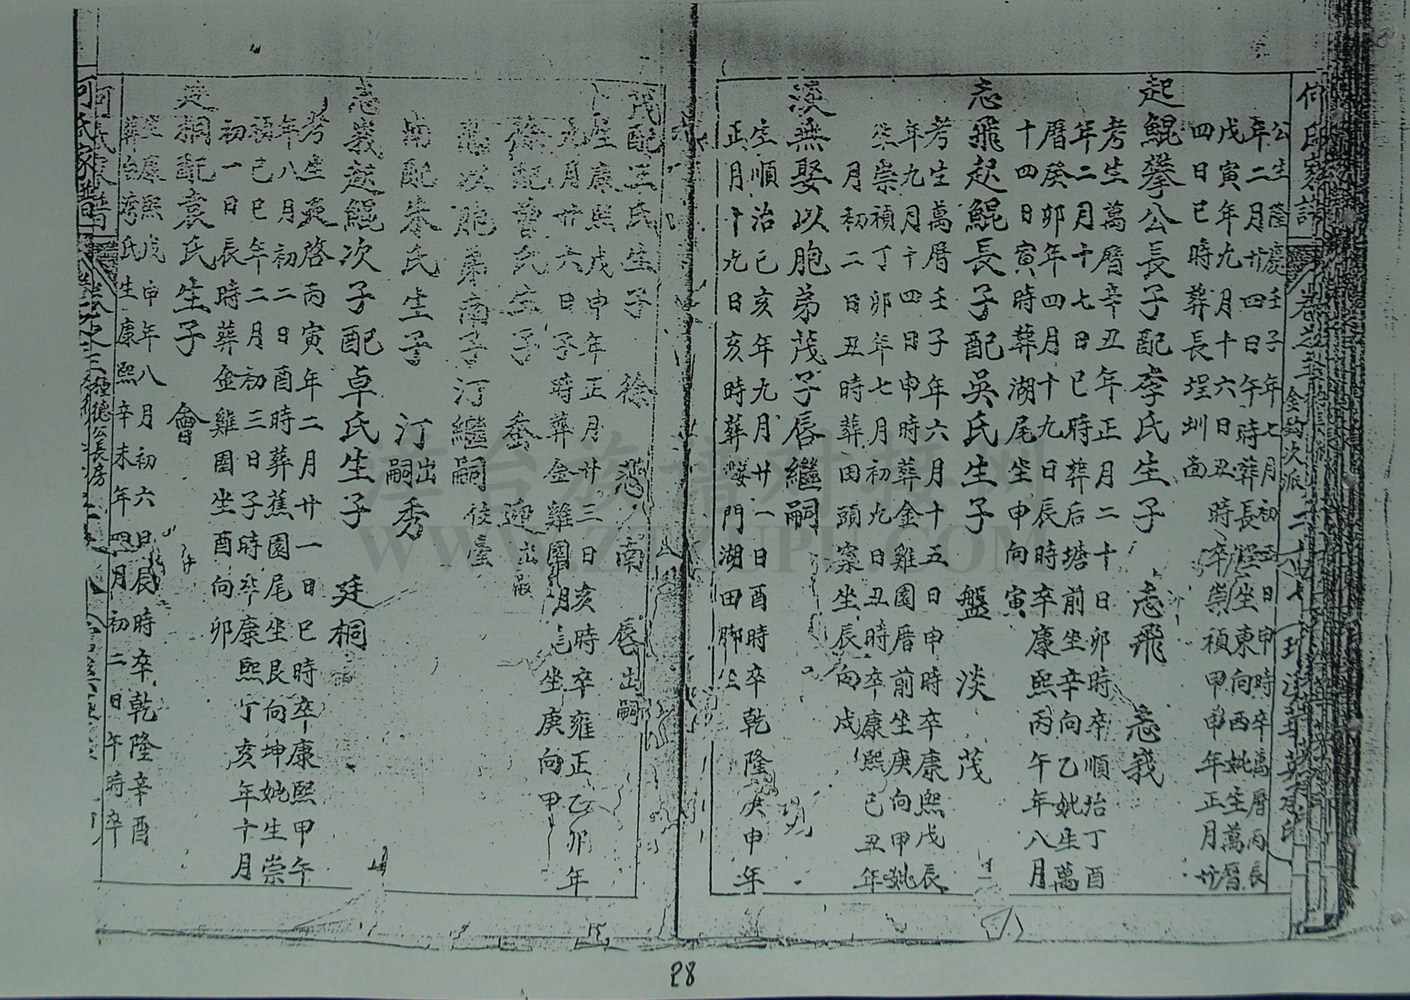 何氏家譜 卷之三 金釣次派 二十七
公生隆慶壬子年七月初五日申時卒萬曆丙辰
年二月廿四日午時葬長埕坐東向西妣生萬曆
戊寅年九月十六日丑時卒崇禎甲申年正月廿
四日巳時葬長埕圳面
起鯤攀公長子配李氏生子 志飛 志義
考生萬曆辛丑年正月二十日卯時卒順治丁酉
年二月十七日巳時葬后塘前坐辛向乙妣生萬
曆癸卯年四月十九日辰時卒康熙丙午年八月
十四日寅時葬湖尾坐申向寅
志飛起鯤長子配吳氏生子 盤 淡 茂
考生萬曆壬子年六月十五日申時卒康熙戊辰
年九月十四日申時葬金雞園厝前坐庚向甲妣
生崇禎丁卯年七月初九日丑時卒康熙己丑年
月初二日丑時葬田頭窠坐辰向戌
淡無娶以胞弟茂子唇繼嗣
生順治己亥年九月廿一日酉時卒乾隆庚申年
正月十九日亥時葬 門湖田脚
茂配王氏生子 徐 恐 南 唇出嗣
生康熙戊申年正月廿三日亥時卒雍正乙卯年
九月廿六日子時葬金雞園 尾坐庚向甲
徐配曾氏生子 蚕 迎出嗣
恐以胞弟南子汀繼嗣 住臺
南配李氏生子 汀出嗣 秀
志義起鯤次子配卓氏生子 廷桐
考生天啓丙寅年二月廿一日巳時卒康熙甲午
年八月初二日酉時葬蕉園尾坐艮向坤妣生崇
禎己巳年二月初三日子時卒康熙丁亥年十月
初一日長時葬金雞園坐酉向卯
廷桐配袁氏生子 會
生康熙戊申年八月初六日辰時卒乾隆辛酉
葬台灣氏生康熙辛未年四月初二日午時卒
何氏家譜 卷之三 德公長房
28
漳台族譜對接網
WWW.ZTZUPU.COM